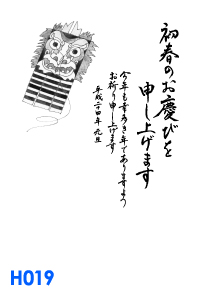 初春のお慶びを
申し上げます
今年も幸多き年でありますよう
お祈り申し上げます
平成二十四年 元旦
H019